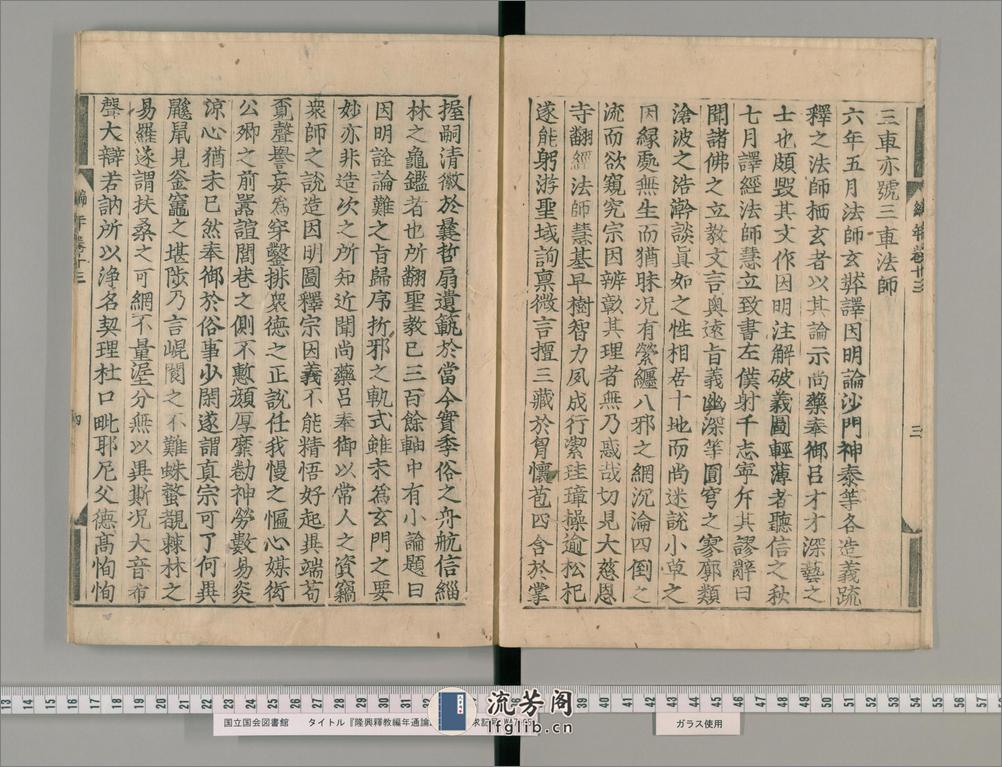 三車亦號三車法師
六年五月法師玄奘譯因明論沙門神泰等各造義疏
釋之法師栖玄者以其論示尚藥奉御呂才才深藝之
士也頗毀其文作因明注解破義圖輕薄者聽信之秋
七月譯經法師慧立致書左僕射于志寧斥其謬辭曰
聞諸佛之立教文言奧遠旨義幽深等圓穹之寥廓類
滄波之浩澣談真如之性相居十地而尚迷說小草之
因緣處無生而猶昧况有縈纏八邪之網沉淪四倒之
流而欲窺究宗因辨彰其理者無乃惑哉切見大慈恩
寺翻經法師慧基早樹智力夙成行潔珪璋操逾松杞
遂能躬游聖域詢稟微言擅三藏於胷懷苞四含於掌
握嗣清徽於曩哲扇遺範於當今實季俗之舟航信緇
林之龜鑑者也所翻聖教已三百餘軸中有小論題曰
因明詮論難之旨歸序折邪之軌式雖未爲玄門之要
妙亦非造次之所知近聞尚藥呂奉御以常人之資竊
衆師之說造因明圖釋宗因義不能精悟好起異端苟
覓聲譽妄爲穿鑿排衆德之正說任我慢之慪心媒衒
公卿之前嚚諠閭巷之側不慙顏厚糜勌神勞數易炎
涼心猶未已然奉御於俗事少閑遂謂真宗可了何異
鼷鼠見釜竈之堪陟乃言崐閬之不難蛛蝥覩棘林之
易羅遂謂扶桑之可網不量涯分無以異斯况大音希
聲大辯若訥所以淨名契理杜口毗耶尼父德髙恂恂
編年卷十三
三
編年卷十三
四
国立国会図書館 タイトル『隆興釋教編年通論
ガラス使用
流芳阁
lfglib.cn